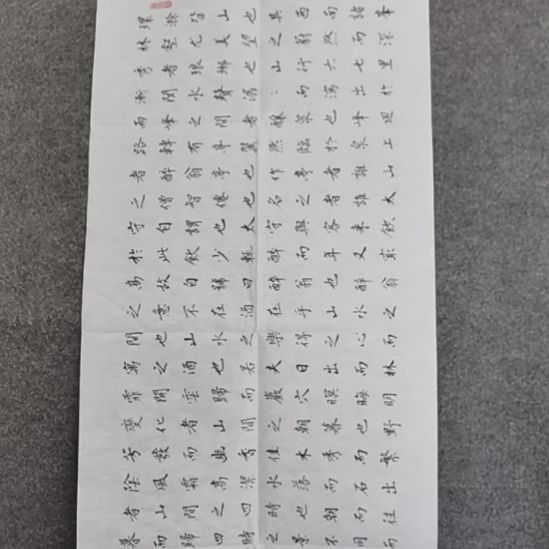 環滁皆山也其西南諸峯
林壑尤美望之蔚然而深
秀者琅琊也山行六七里
漸聞水聲潺潺而瀉出於
兩峰之間者釀泉也峰迴
路轉有亭翼然臨於泉上
者醉翁亭也作亭者誰山
之僧智僊也名之者誰太
守自謂也太守與客來飲
於此飲少輒醉而年又最
高故自號曰醉翁也醉翁
之意不在酒在乎山水之
間也山水之樂得之心而
寓之酒也若夫日出而林
霏開雲歸而巖穴暝晦明
變化者山間之朝暮也野
芳發而幽香佳木秀而繁
陰風霜高潔水落而石出
者山間之四時也朝而往
暮而歸四時之景不同而